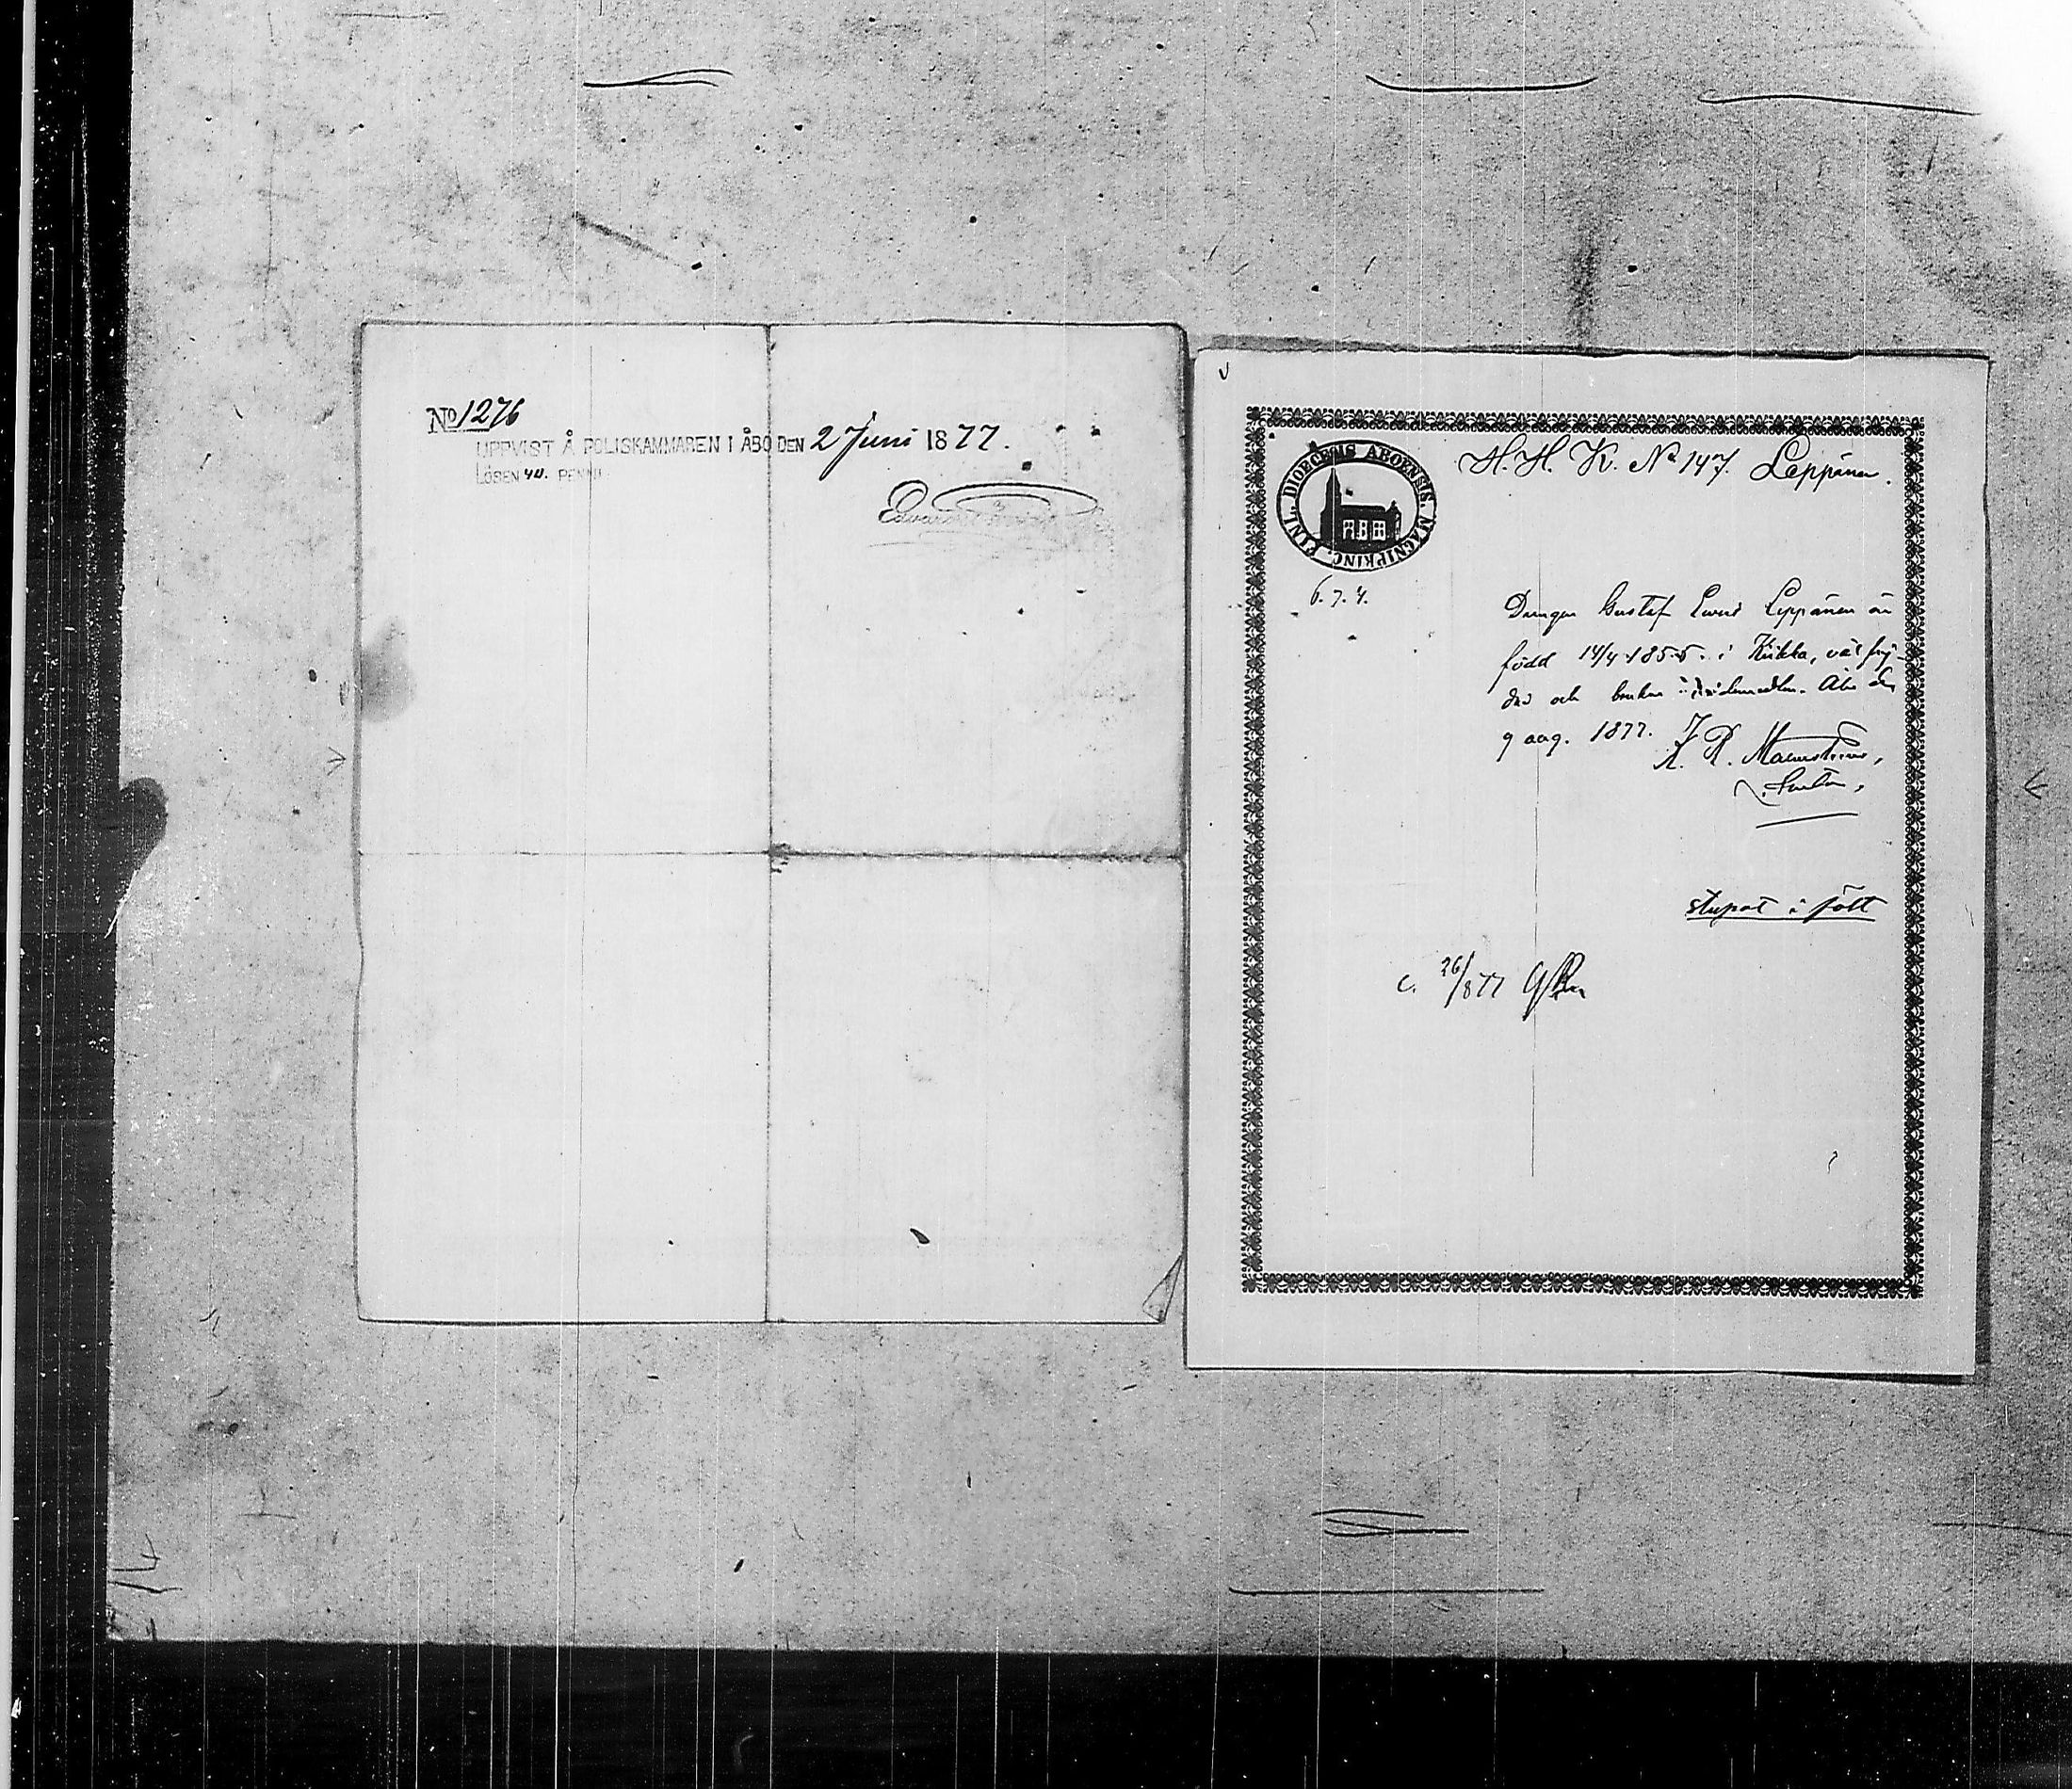 No 1276
UPPVIST Å POLISKAMMAREN I ÅBO DEN 2 Juni 1877.
LÖSEN 40. PENNI.
Edvard
FINL. DIOECESIS ABOENSIS. MAGNIPRINC.
H. H. K. No 147. Leppänen.
6. 7. 4.
Drengen Gustaf Leppänen är
född 14/4 1855. i Kiikka, väl frej-
dad och brukar Åbo den
9 aug. 1877. K. R. Malmström,
stupat i fält
c. 26/8 77